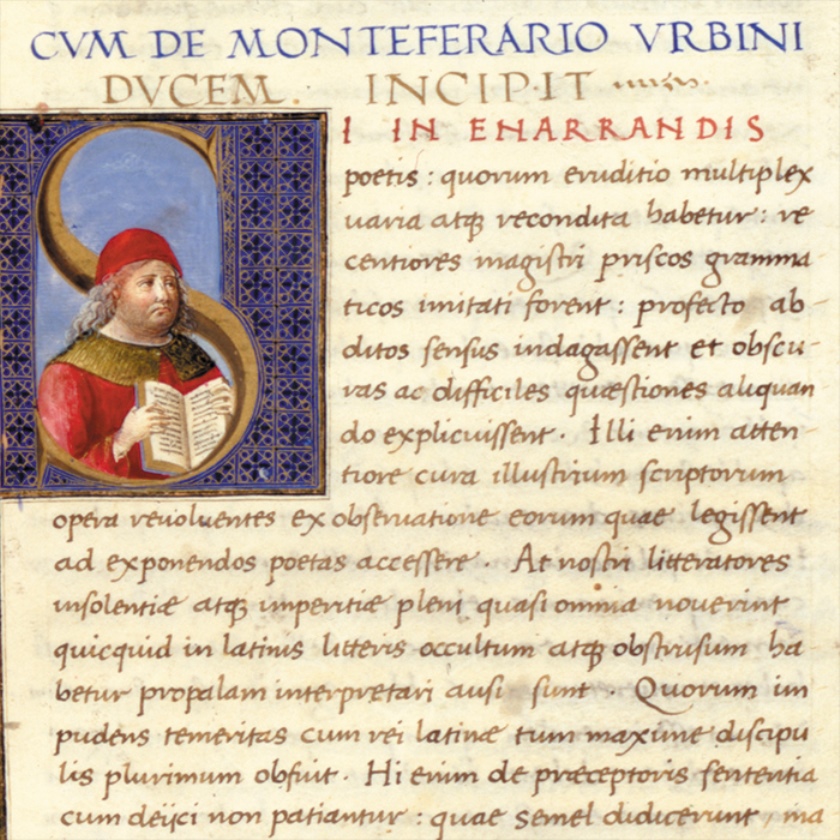 CVM DE MONTEFERARIO VRBINI
DVCEM. INCIPIT
I IN ENARRANDIS
poetis : quorum eruditio multiplex
uaria atq; recondita habetur : re
centiores magistri priscos gramma-
ticos imitati forent : profecto ab-
ditos sensus indagassent et obscu-
ras ac difficiles quæstiones aliquan
do explicuissent. Illi enim atten-
tiore cura illustrium scriptorum
opera reuoluentes ex obseruatione eorum quae legissent
ad exponendos poetas accessere. At nostri litteratores
insolentiæ atq; imperitiæ pleni quasi omnia nouerint
quicquid in latinis litteris occultum atq; obstrusum ha-
betur propalam interpretari ausi sunt. Quorum im
pudens temeritas cum rei latinæ tum maxime discipu
lis plurimum obfuit. Hi enim de præceptoris sententia
cum deijci non patiantur : quae semel didicerunt, ma